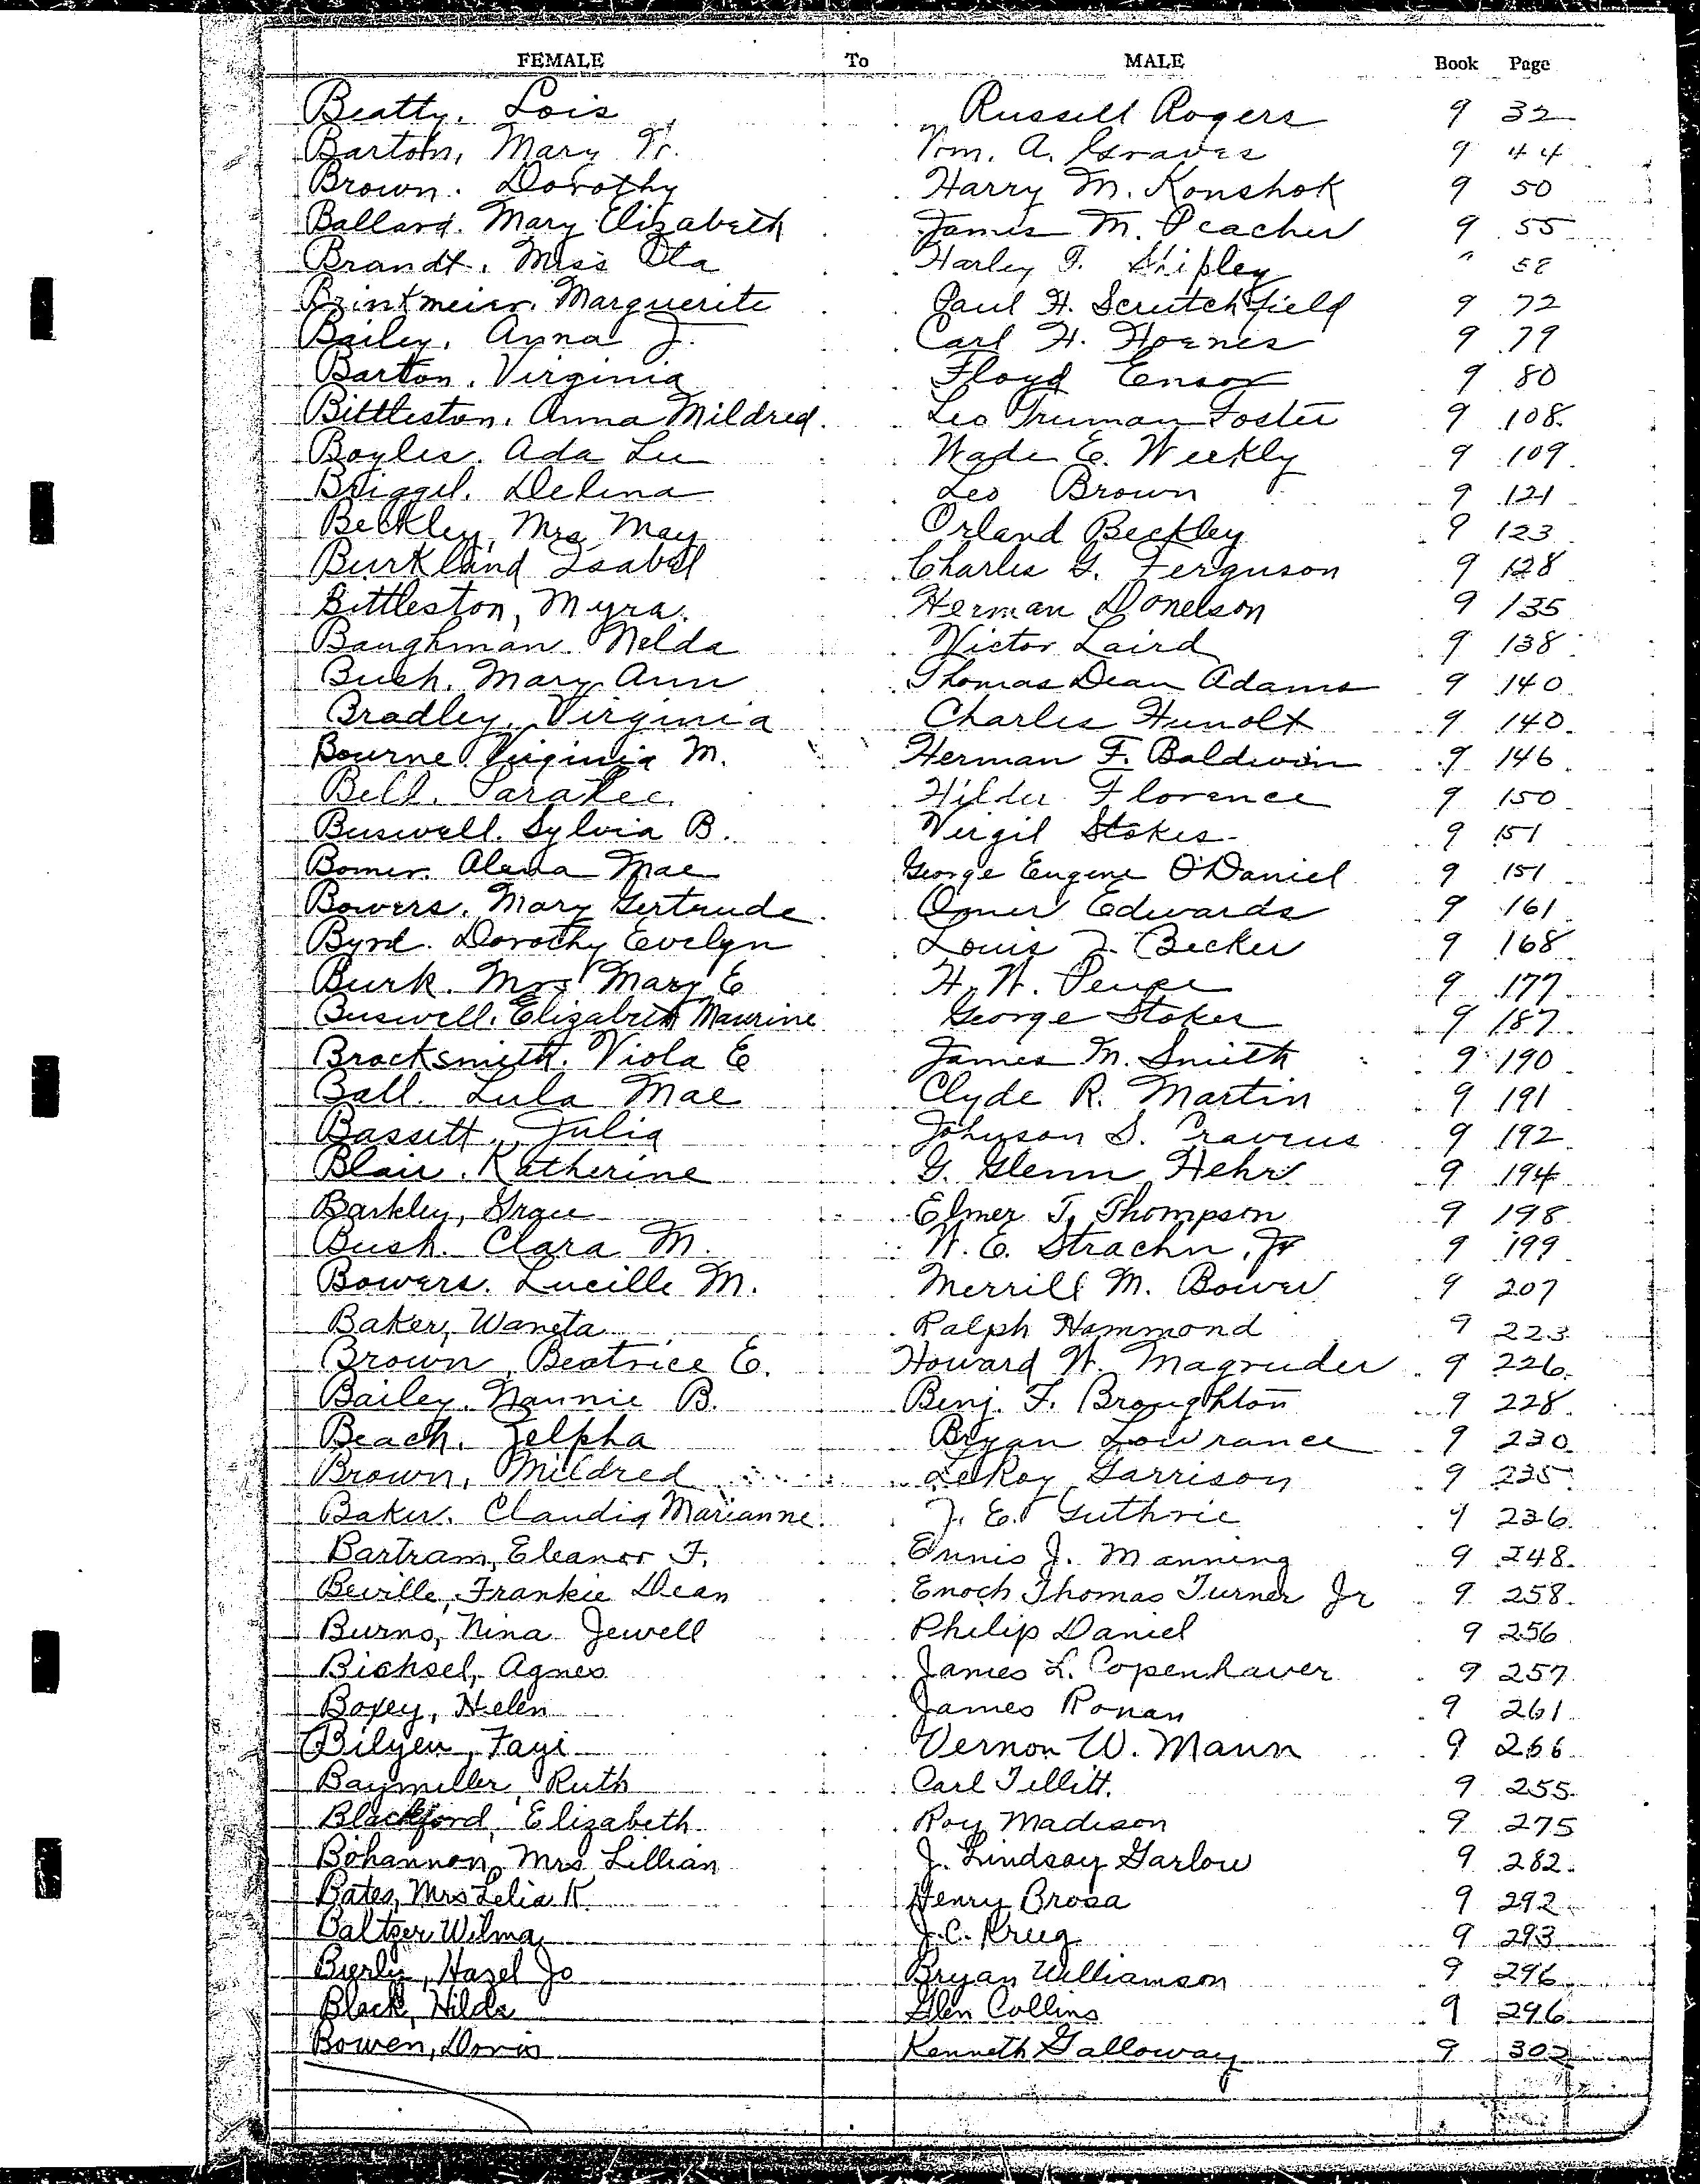 FEMALE To MALE Book Page
Beatty, Lois Russell Rogers 9 32
Barton, Mary Wm. A. Graves 9 44
Brown. Dorothy Harry M. Konshok 9 50
Ballard. Mary Elizabeth James M. Peacher 9 55
Brandt. Miss Ola Harley F. Shipley " 58
Brinkmeier. Marguerite Paul H. Scrutchfield 9 72
Bailey. Anna J. Carl H. Hoenes 9 79
Barton. Virginia Floyd Ensor 9 80
Bittleston. Anna Mildred Leo Truman Foster 9 108
Boyles. Ada Lee Wade E. Weekly 9 109
Delena Leo Brown 9 121
Beckley, Mrs May Orland Beckley 9 123
Burkland Isabel Charles G. Ferguson 9 128
Bittleston, Myra. Herman Donelson 9 135
Baughman. Nelda Victor Laird 9 138
Bush. Mary Ann Thomas Dean Adams 9 140
Bradley. Virginia Charles Hunolt 9 140
Bourne Virginia M. Herman F. Baldwin 9 146
Bell. Saralee Hilder Florence 9 150
Buswell. Sylvia B. Virgil Stokes 9 151
Bomer. Alema Mae George Eugene O'Daniel 9 151
Bowers. Mary Gertrude Omer Edwards 9 161
Byrd. Dorothy Evelyn Louis J. Becker 9 168
Burk. Mrs Mary E H. W. Pence 9 177
Buswell. Elizabeth Maurine George Stoker 9 187
Brocksmith. Viola E James M. Smith 9 190
Ball. Lula Mae Clyde R. Martin 9 191
Bassett. Julia Johnson S. Cravens 9 192
Blair. Katherine G. Glenn Hehr 9 194
Barkley, Grace Elmer T. Thompson 9 198
Bush. Clara M. W. E. Strachn, Jr 9 199
Bowers. Lucille M. Merrill M. Bower 9 207
Baker, Waneta Ralph Hammond 9 223
Brown, Beatrice E. Howard W. Magruder 9 226
Bailey. Nannie B. Benj. F. Broughton 9 228
Beach. Zelpha Bryan Lowrance 9 230
Brown, Mildred LeRoy Garrison 9 235
Baker. Claudia Marianne. J. E. Guthrie 9 236
Bartram, Eleanor F. Ennis J. Manning 9 248
Beville, Frankie Dean Enoch Thomas Turner Jr 9 258
Burns, Nina Jewell Philip Daniel 9 256
Bichsel, Agnes James L. Copenhaver 9 257
Boxey, Helen James Ronan 9 261
Bilyeu, Faye Vernon W. Mann 9 266
Baymiller, Ruth Carl Tillitt. 9 255
Blackford, Elizabeth Roy Madison 9 275
Bohannon, Mrs Lillian J. Lindsay Garlow 9 282
Bates, Mrs Lelia K. Henry Brosa 9 292
Baltzer Wilma J.C. Krieg 9 293
Bierly, Hazel Jo Bryan Williamson 9 296
Black, Hilda Glen Collins 9 296
Bowen, Doris Kenneth Galloway 9 302